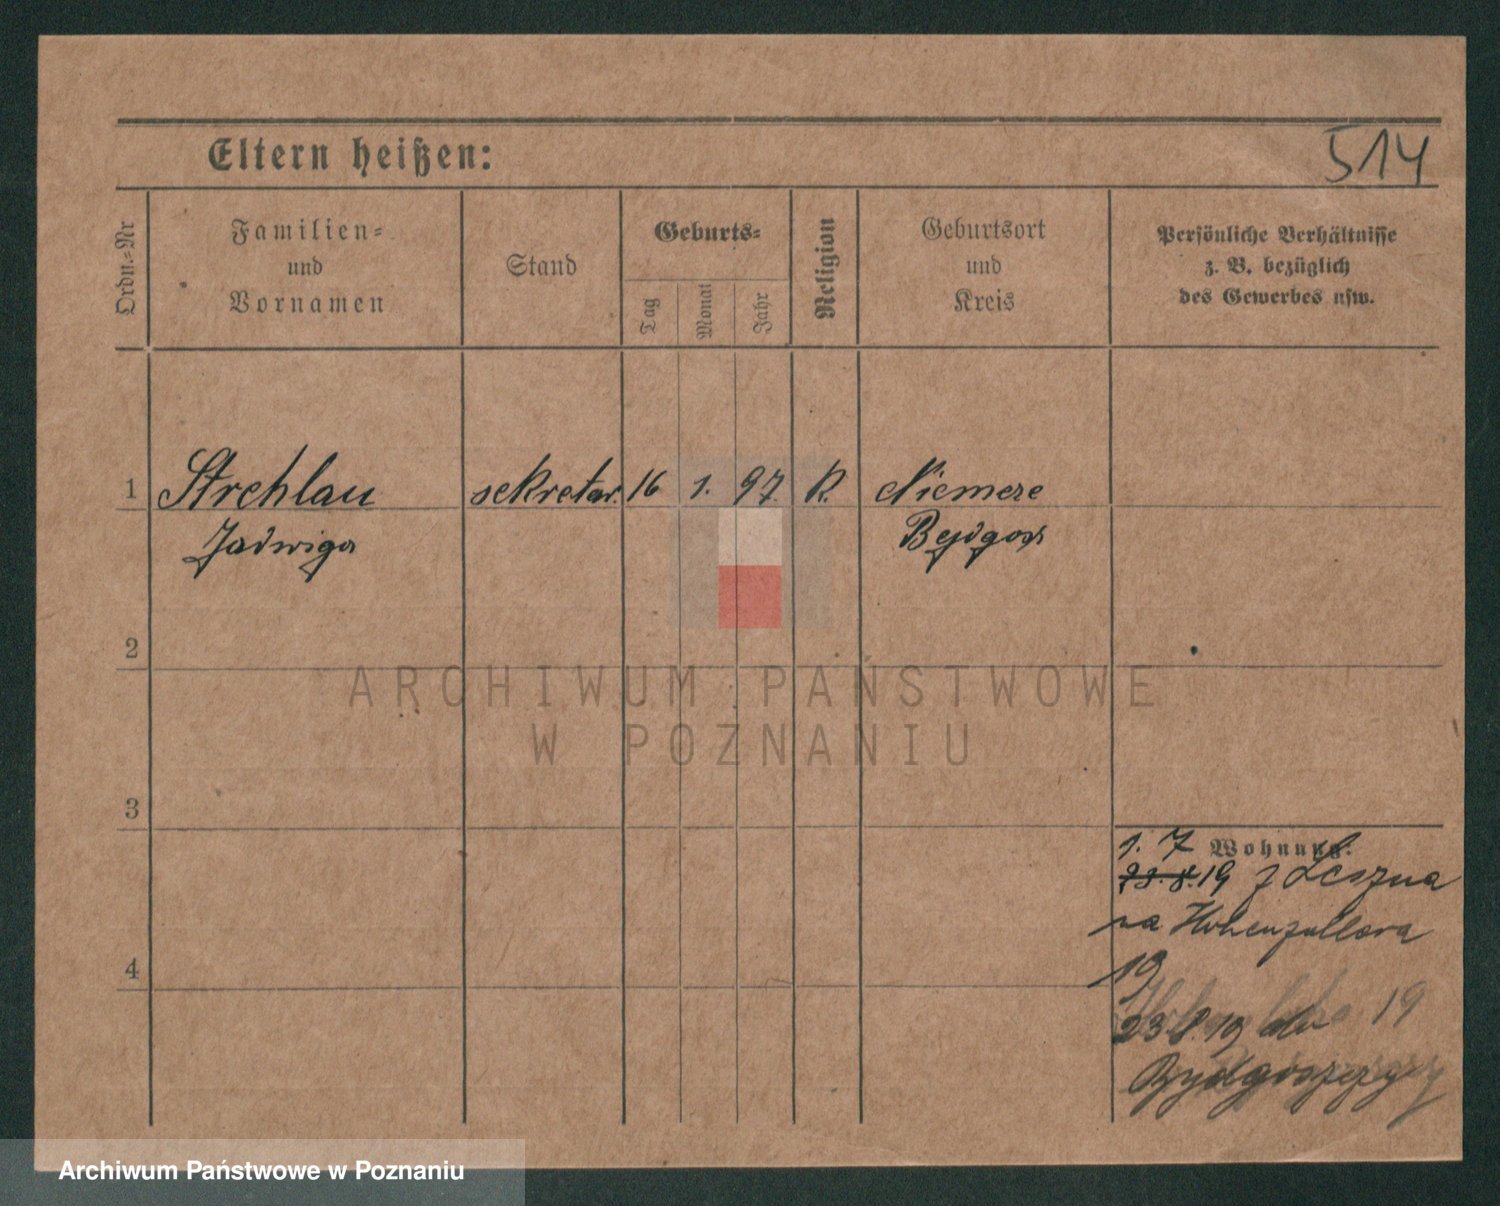 Eltern heißen:
514
Ordn.-Nr
Familien-
und
Vornamen
Stand
Geburts-
Tag
Monat
Jahr
Religion
Geburtsort
und
Kreis
Persönliche Verhältnisse
z. B. bezüglich
des Gewerbes usw.
1 Strehlau sekretar. 16 1. 97. R.
Jadwiga
2
ARCHIWUM PAŃSTWOWE
W POZNANIU
3
Wohnung:
1. 7
23.8.19 z Leszna
na Hohenzollera
19
4
19
23.8.19 do
Bydgoszczy
Archiwum Państwowe w Poznaniu